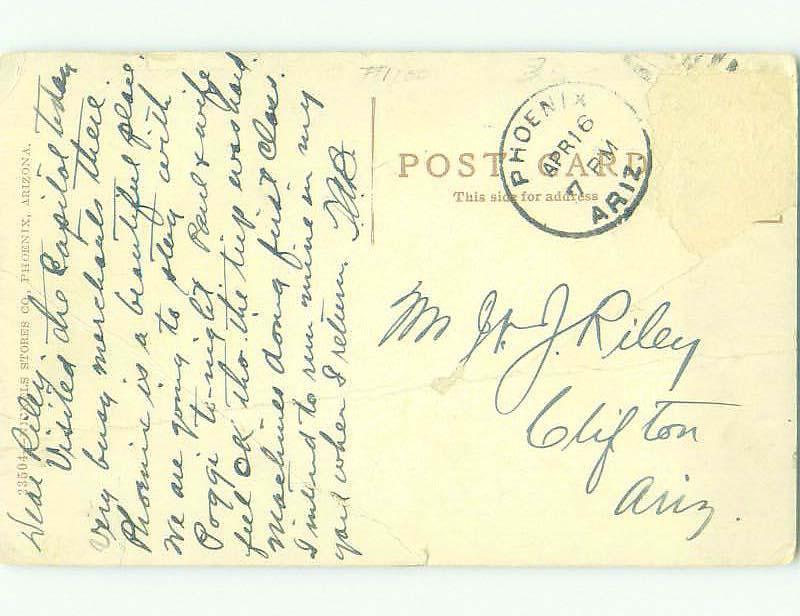 Dear Riley
Visited the Capitol today
very busy merchants there.
Phoenix is a beautiful place
We are going to stay with
Poggi to-night Paul & wife
feel OK tho the trip was hard.
Machines doing first class.
I intend to run mine in my
yard when I return.
POST CARD
This side for address
PHOENIX
APR 16
7 PM
ARIZ
Mr H. J. Riley
Clifton
Ariz.
STORES CO., PHOENIX, ARIZONA.